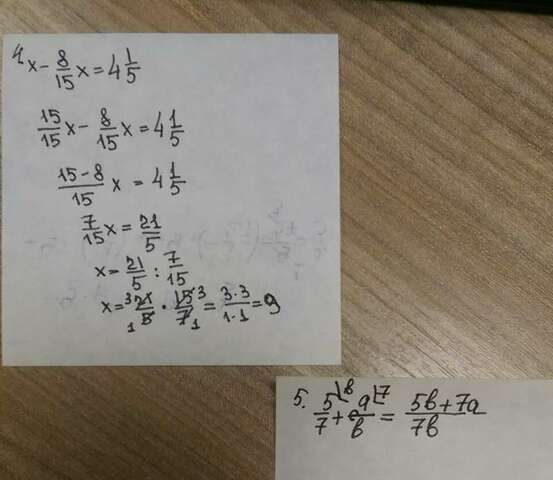 4. x - 8/15 x = 4 1/5
15/15 x - 8/15 x = 4 1/5
(15-8)/15 x = 4 1/5
7/15 x = 21/5
x = 21/5 : 7/15
x = ³21/5₁ · 15³/7₁ = 3·3/1·1 = 9
5. 5/7 + a/b = (5b+7a)/7b